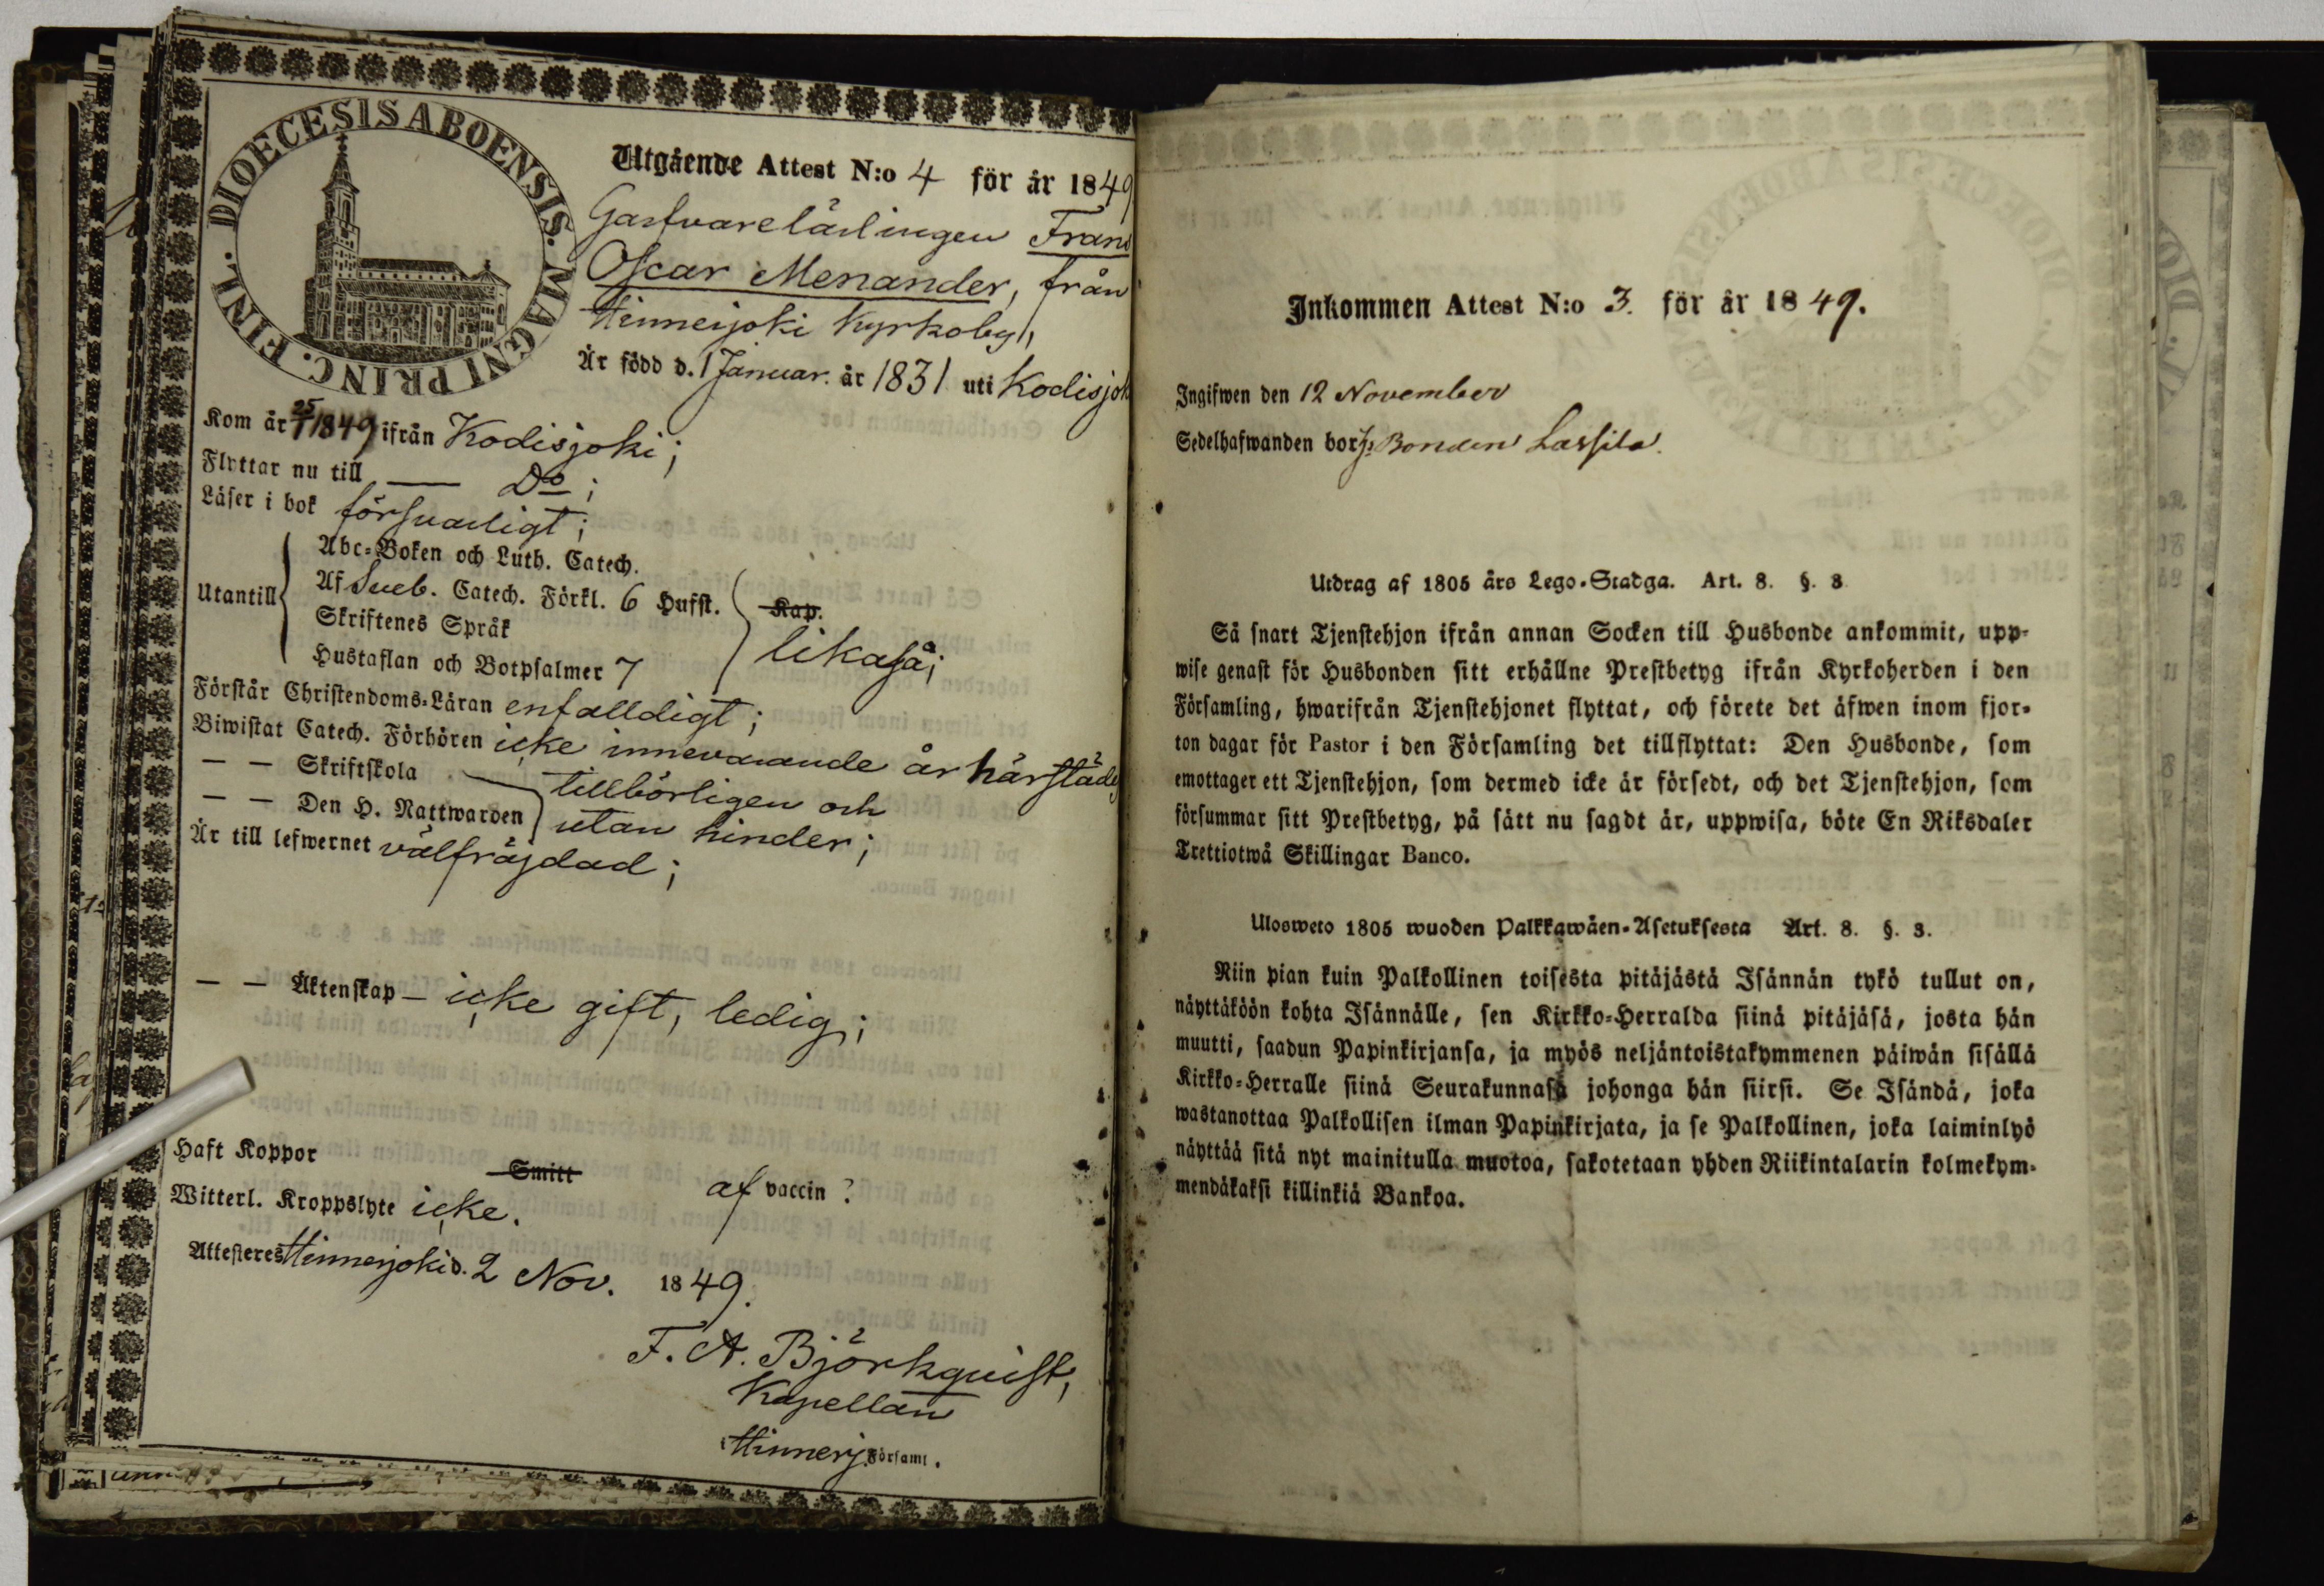 DIOECESIS ABOENSIS. MAGNI PRINC. FINL.
Utgående Attest N:o 4 för år 1849
Garfvarelärlingen Frans
Oscar Menander, från
Hinnerjoki Kyrkoby,
Är född d. 1 Januar. år 1831 uti Kodisjok
Kom år 25/1 1849 ifrån Kodisjoki;
Flyttar nu till — Do;
Läser i bok försvarligt;
Utantill
Abc-Boken och Luth. Catech.
Af Sveb. Catech. Förkl. 6 Hufst. Kap.
Skriftenes Språk
Hustaflan och Botpsalmer 7 likaså;
Förstår Christendoms-Läran enfalldigt;
Biwistat Catech. Förhören icke innevarande år härstädes
— — Skriftskola — tillbörligen och
— — Den H. Nattwarden utan hinder;
Är till lefwernet välfräjdad;
— — Äktenskap — icke gift, ledig;
Haft Koppor Smitt af vaccin?
Witterl. Kroppslyte icke.
Attesteres Hinnerjoki d. 2 Nov. 1849.
F. A. Björkquist,
Kapellan
i Hinnerj. Församl.
Inkommen Attest N:o 3. för år 1849.
Ingifwen den 12 November
Sedelhafwanden bor Bonden Lassila.
Utdrag af 1805 års Lego-Stadga. Art. 8. §. 3
Så snart Tjenstehjon ifrån annan Socken till Husbonde ankommit, upp-
wise genast för Husbonden sitt erhållne Prestbetyg ifrån Kyrkoherden i den
Församling, hwarifrån Tjenstehjonet flyttat, och förete det äfwen inom fjor-
ton dagar för Pastor i den Församling det tillflyttat: Den Husbonde, som
emottager ett Tjenstehjon, som dermed icke är försedt, och det Tjenstehjon, som
försummar sitt Prestbetyg, på sätt nu sagdt är, uppwisa, böte En Riksdaler
Trettiotwå Skillingar Banco.
Ulosweto 1805 wuoden Palkkawäen-Asetuksesta Art. 8. §. 3.
Niin pian kuin Palkollinen toisesta pitäjästä Isännän tykö tullut on,
näyttäköön kohta Isännälle, sen Kirkko-Herralda siinä pitäjäsä, josta hän
muutti, saadun Papinkirjansa, ja myös neljäntoistakymmenen päiwän sisällä
Kirkko-Herralle siinä Seurakunnasa johonga hän siirsi. Se Isändä, joka
wastanottaa Palkollisen ilman Papinkirjata, ja se Palkollinen, joka laiminlyö
näyttää sitä nyt mainitulla muotoa, sakotetaan yhden Riikintalarin kolmekym-
mendäkaksi killinkiä Bankoa.